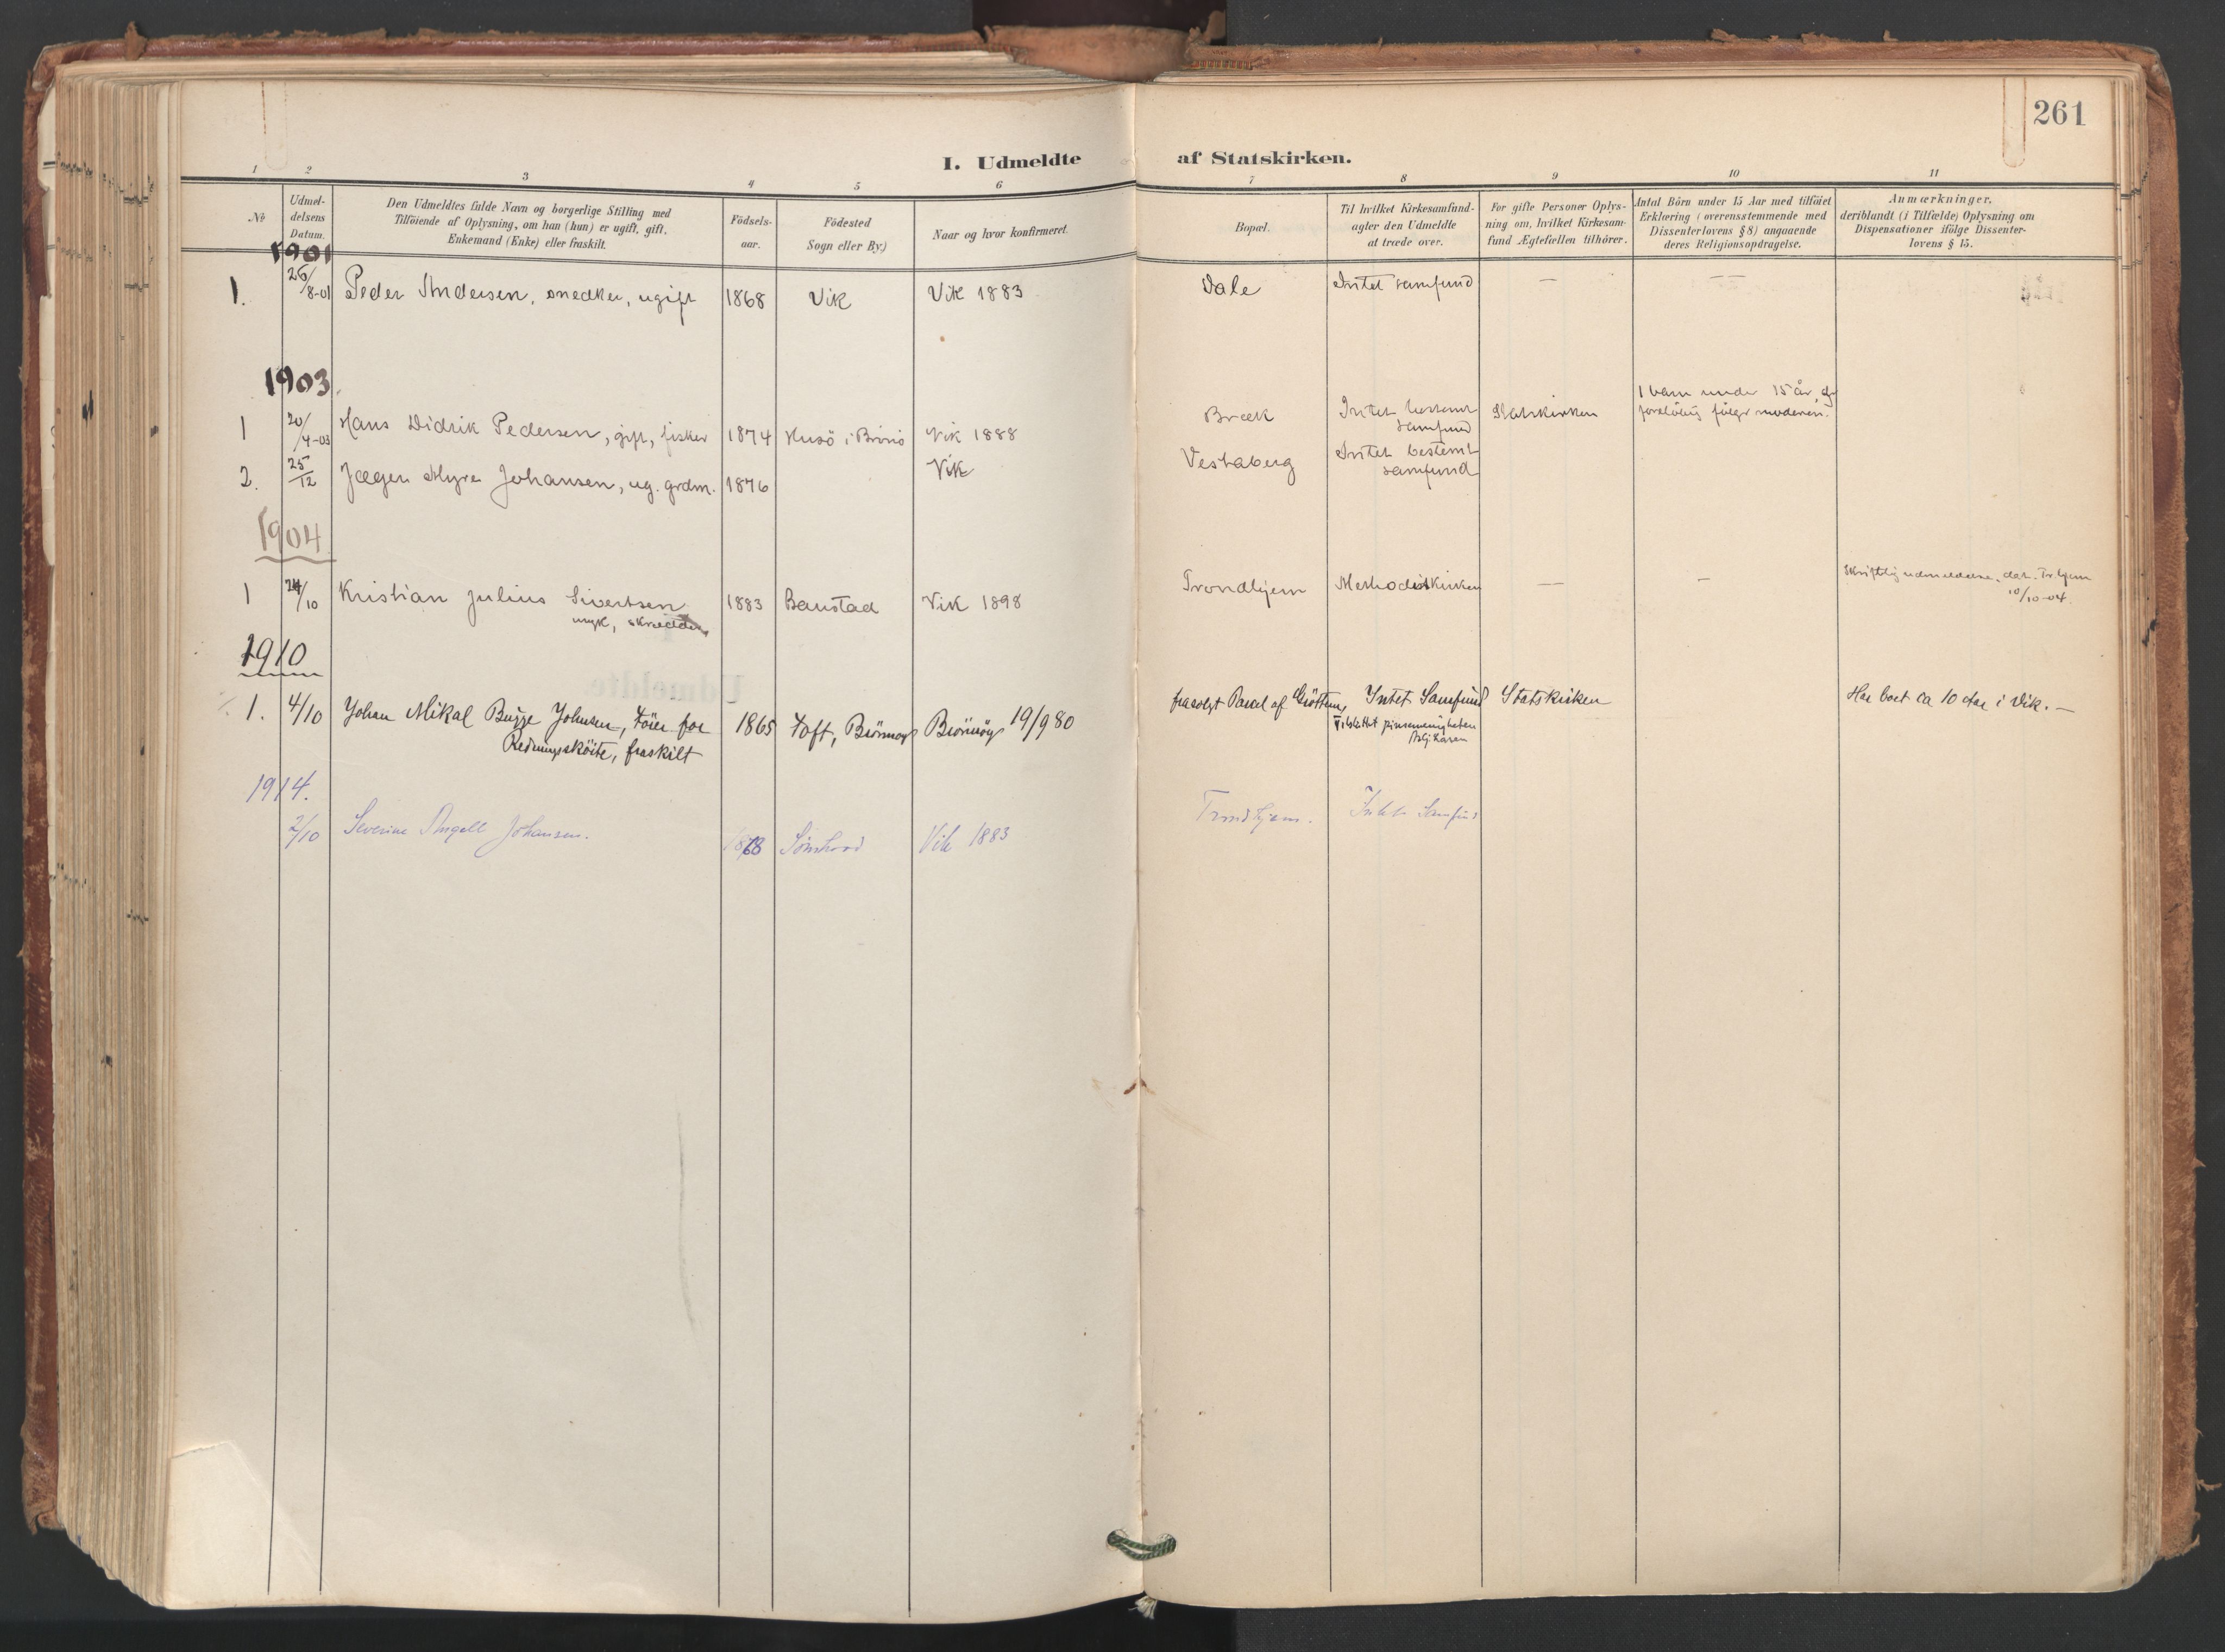 261
I. Udmeldte af Statskirken.
1 2 3 4 5 6 7 8 9 10 11
№
Udmel-
delsens
Datum.
Den Udmeldtes fulde Navn og borgerlige Stilling med
Tilföiende af Oplysning, om han (hun) er ugift, gift,
Enkemand (Enke) eller fraskilt.
Födsels-
aar.
Födested
Sogn eller By.)
Naar og hvor konfirmeret.
Bopæl.
Til hvilket Kirkesamfund-
agter den Udmeldte
at træde over.
For gifte Personer Oplys-
ning om, hvilket Kirkesam-
fund Ægtefællen tilhörer.
Antal Börn under 15 Aar med tilföiet
Erklæring (overensstemmende med
Dissenterlovens § 8) angaaende
deres Religionsopdragelse.
Anmærkninger,
deriblandt (i Tilfælde) Oplysning om
Dispensationer ifölge Dissenter-
lovens § 15.
1901
1. 26/8-01 Peder Andersen, snedker, ugift 1868 Vik Vik 1883 Dale Intet samfund — — —
1903
1 20/4-03 Hans Didrik Pedersen, gift, fisker 1874 Husö i Brönö Vik 1888 Bræk Intet bestemt
samfund
Statskirken
1 barn under 15 år, og
foreløbig følger moderen.
2. 25/12 Jæger Myre Johansen, ug. grdm. 1876 Vik Intet bestemt
samfund
1904
1 24/10 Kristian Julius Sivertsen 1883 Baustad Vik 1898 Trondhjem Methodistkirken — — Skriftlig udmeldelse, dat. Tr.hjem
10/10-04.
ugift, skrædder
1910
1. 4/10 Johan Mikal Bugge Johnsen, Förer for 1865 Toft, Brönnöy Brönnöy 19/9 80 Intet Samfund Statskirken Har boet ca 10 Aar i Vik. —
Redningsköite, fraskilt
1914.
2/10 Severine Angell Johansen. 1868 Sömhovd Vik 1883 Trondhjem. Intet Samfund